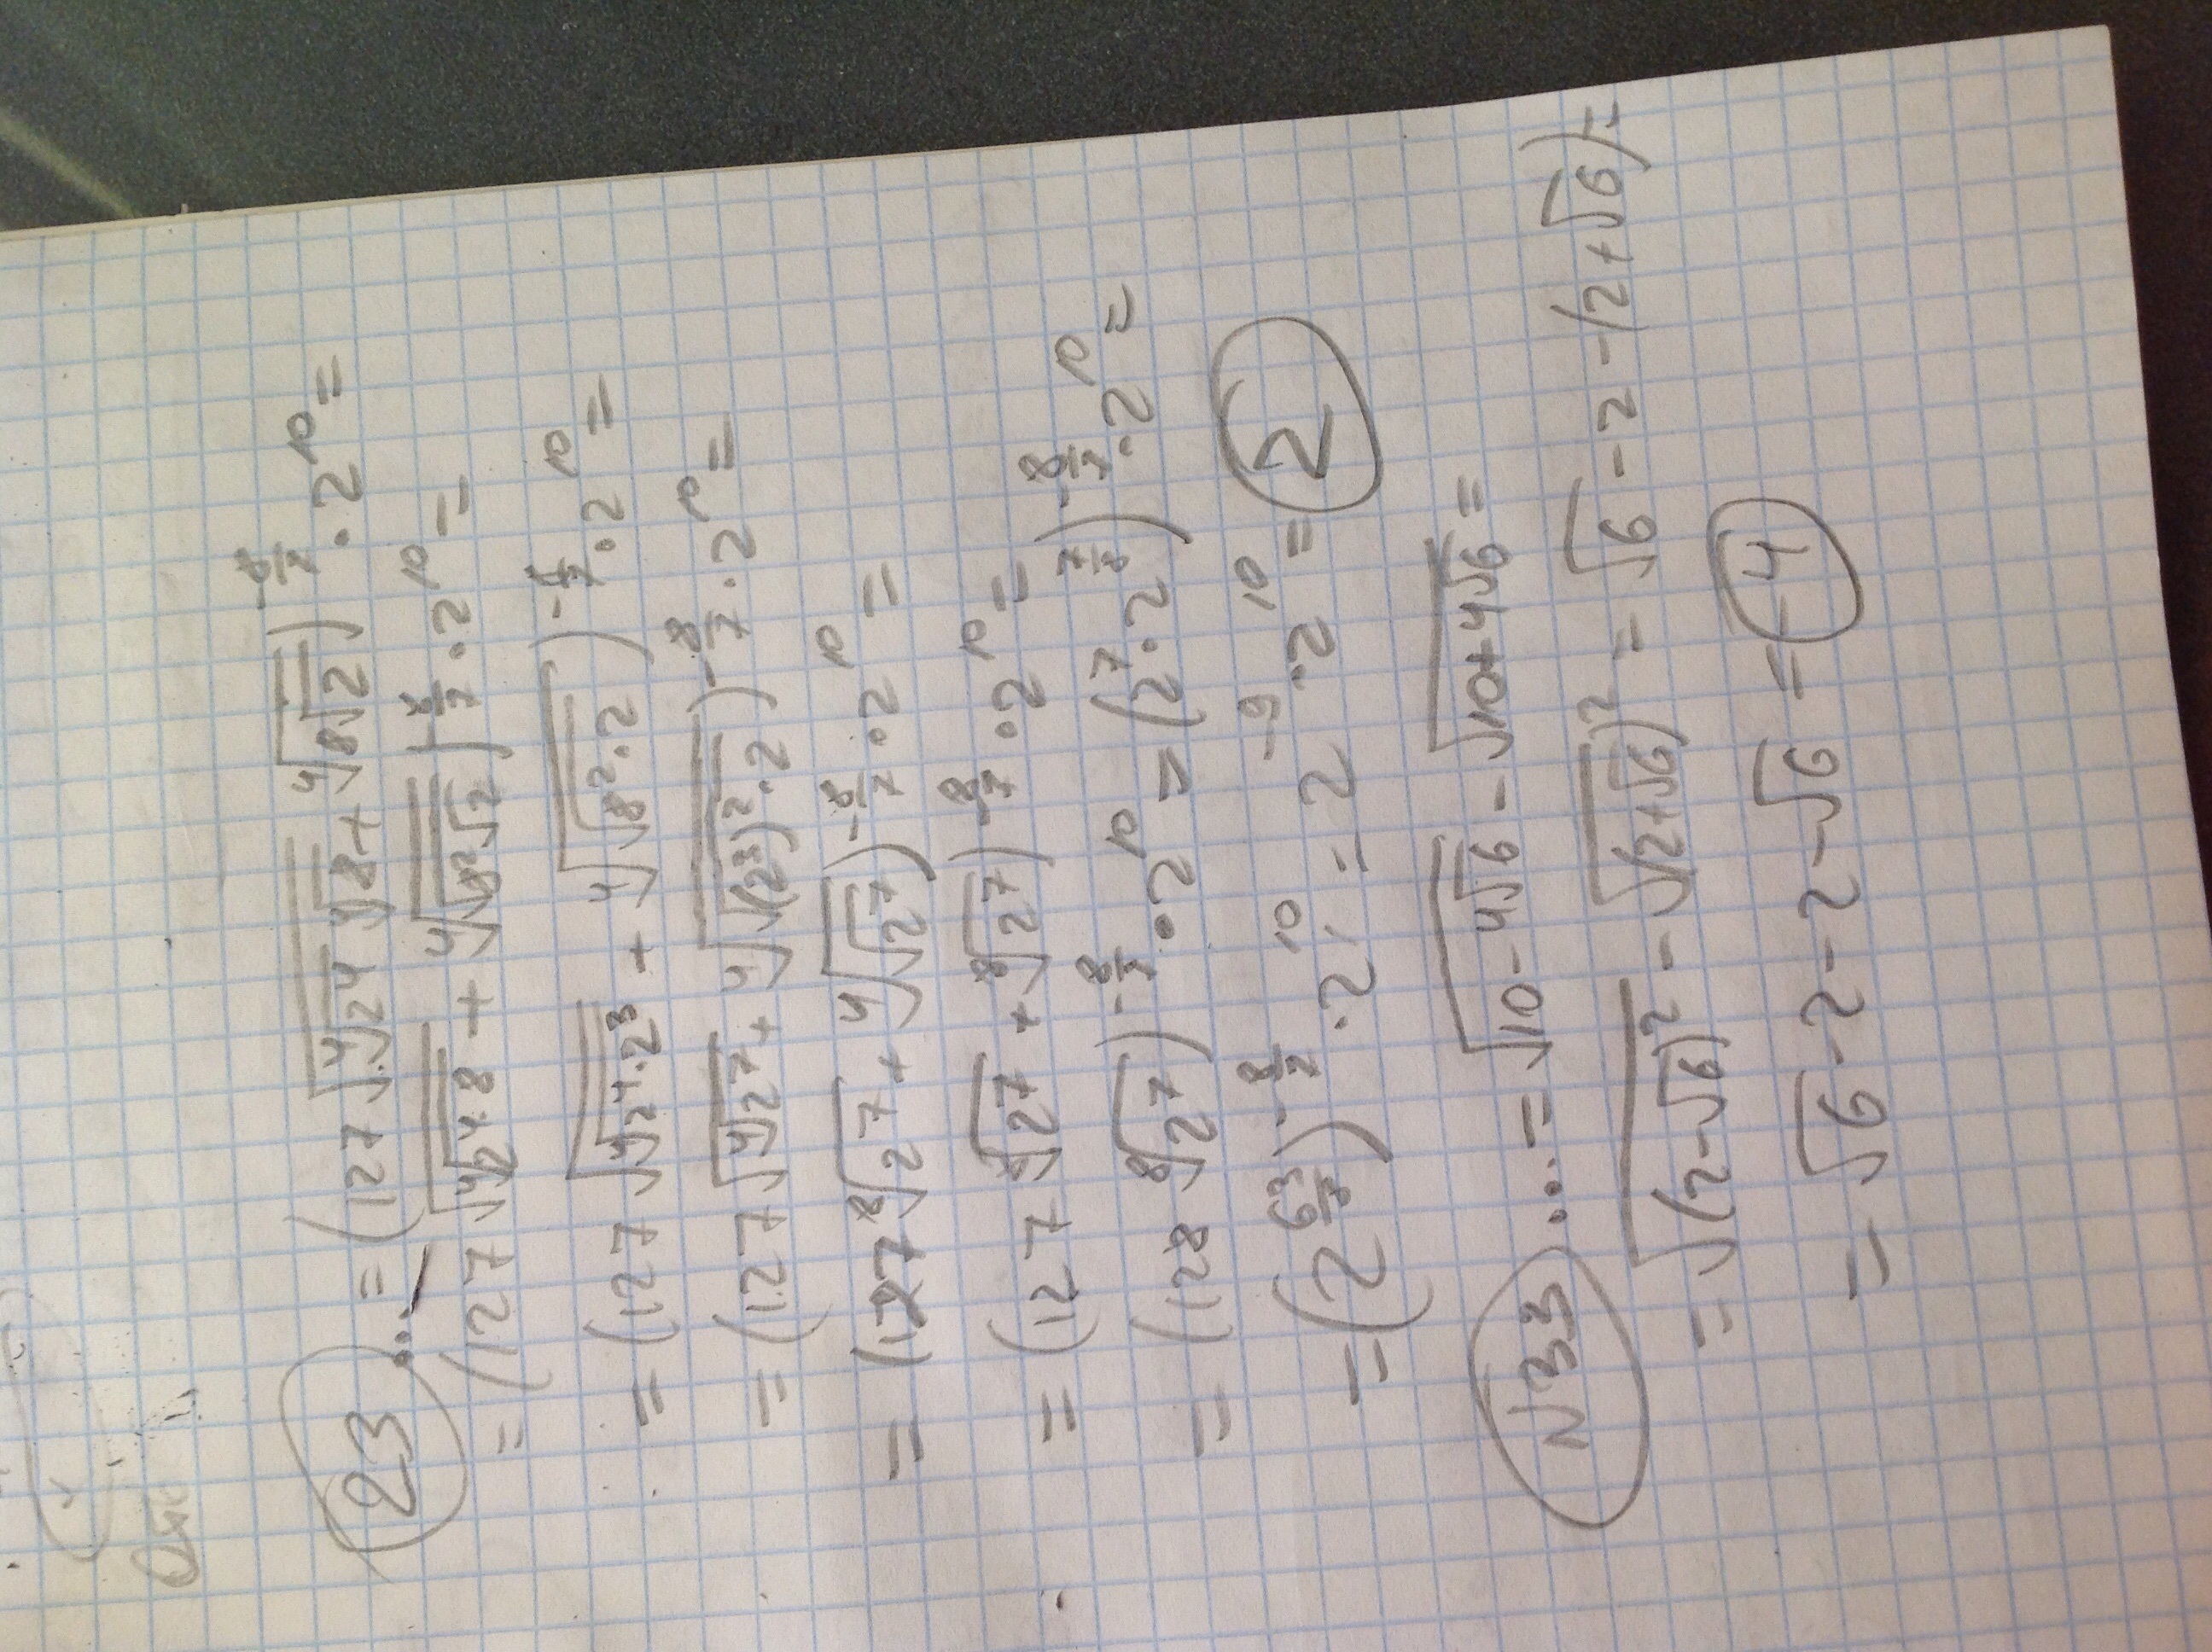 23 ... = (127 √(⁴√2⁴ ⁴√8) + ⁴√(8√2))^(-8/7) · 2^10 =
= (127 √(⁴√(2⁴·8)) + ⁴√(√8²√2))^(-8/7) · 2^10 =
= (127 √(⁴√(2⁴·2³)) + ⁴√(√(8²·2)))^(-8/7) · 2^10 =
= (127 √(⁴√2⁷) + ⁴√(√((2³)²·2)))^(-8/7) · 2^10 =
= (127 ⁸√2⁷ + ⁴√(√2⁷))^(-8/7) · 2^10 =
= (127 ⁸√2⁷ + ⁸√2⁷)^(-8/7) · 2^10 =
= (128 ⁸√2⁷)^(-8/7) · 2^10 = (2⁷ · 2^(7/8))^(-8/7) · 2^10 =
= (2^(63/8))^(-8/7) · 2^10 = 2^(-9) · 2^10 = 2
N33 ... = √(10 - 4√6) - √(10 + 4√6) =
= √((2 - √6)²) - √((2 + √6)²) = √6 - 2 - (2 + √6) =
= √6 - 2 - 2 - √6 = -4